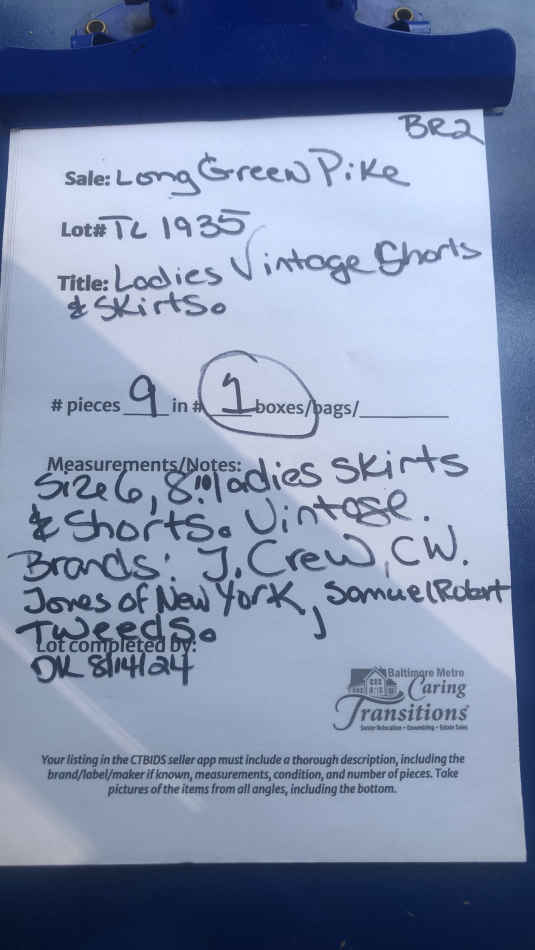 BR2
Sale: Long Green Pike
Lot# TL 1935
Title: Ladies Vintage Shorts
& Skirts.
# pieces 9 in # 1 boxes/bags/
Measurements/Notes:
Size 6, 8. ladies skirts
& Shorts. Vintage.
Brands: J. Crew, CW.
Jones of New York, Samuel Robert
Tweeds.
Lot completed by:
DK 8/14/24
Baltimore Metro
Caring
Transitions
Senior Relocation • Downsizing • Estate Sales
Your listing in the CTBIDS seller app must include a thorough description, including the
brand/label/maker if known, measurements, condition, and number of pieces. Take
pictures of the items from all angles, including the bottom.